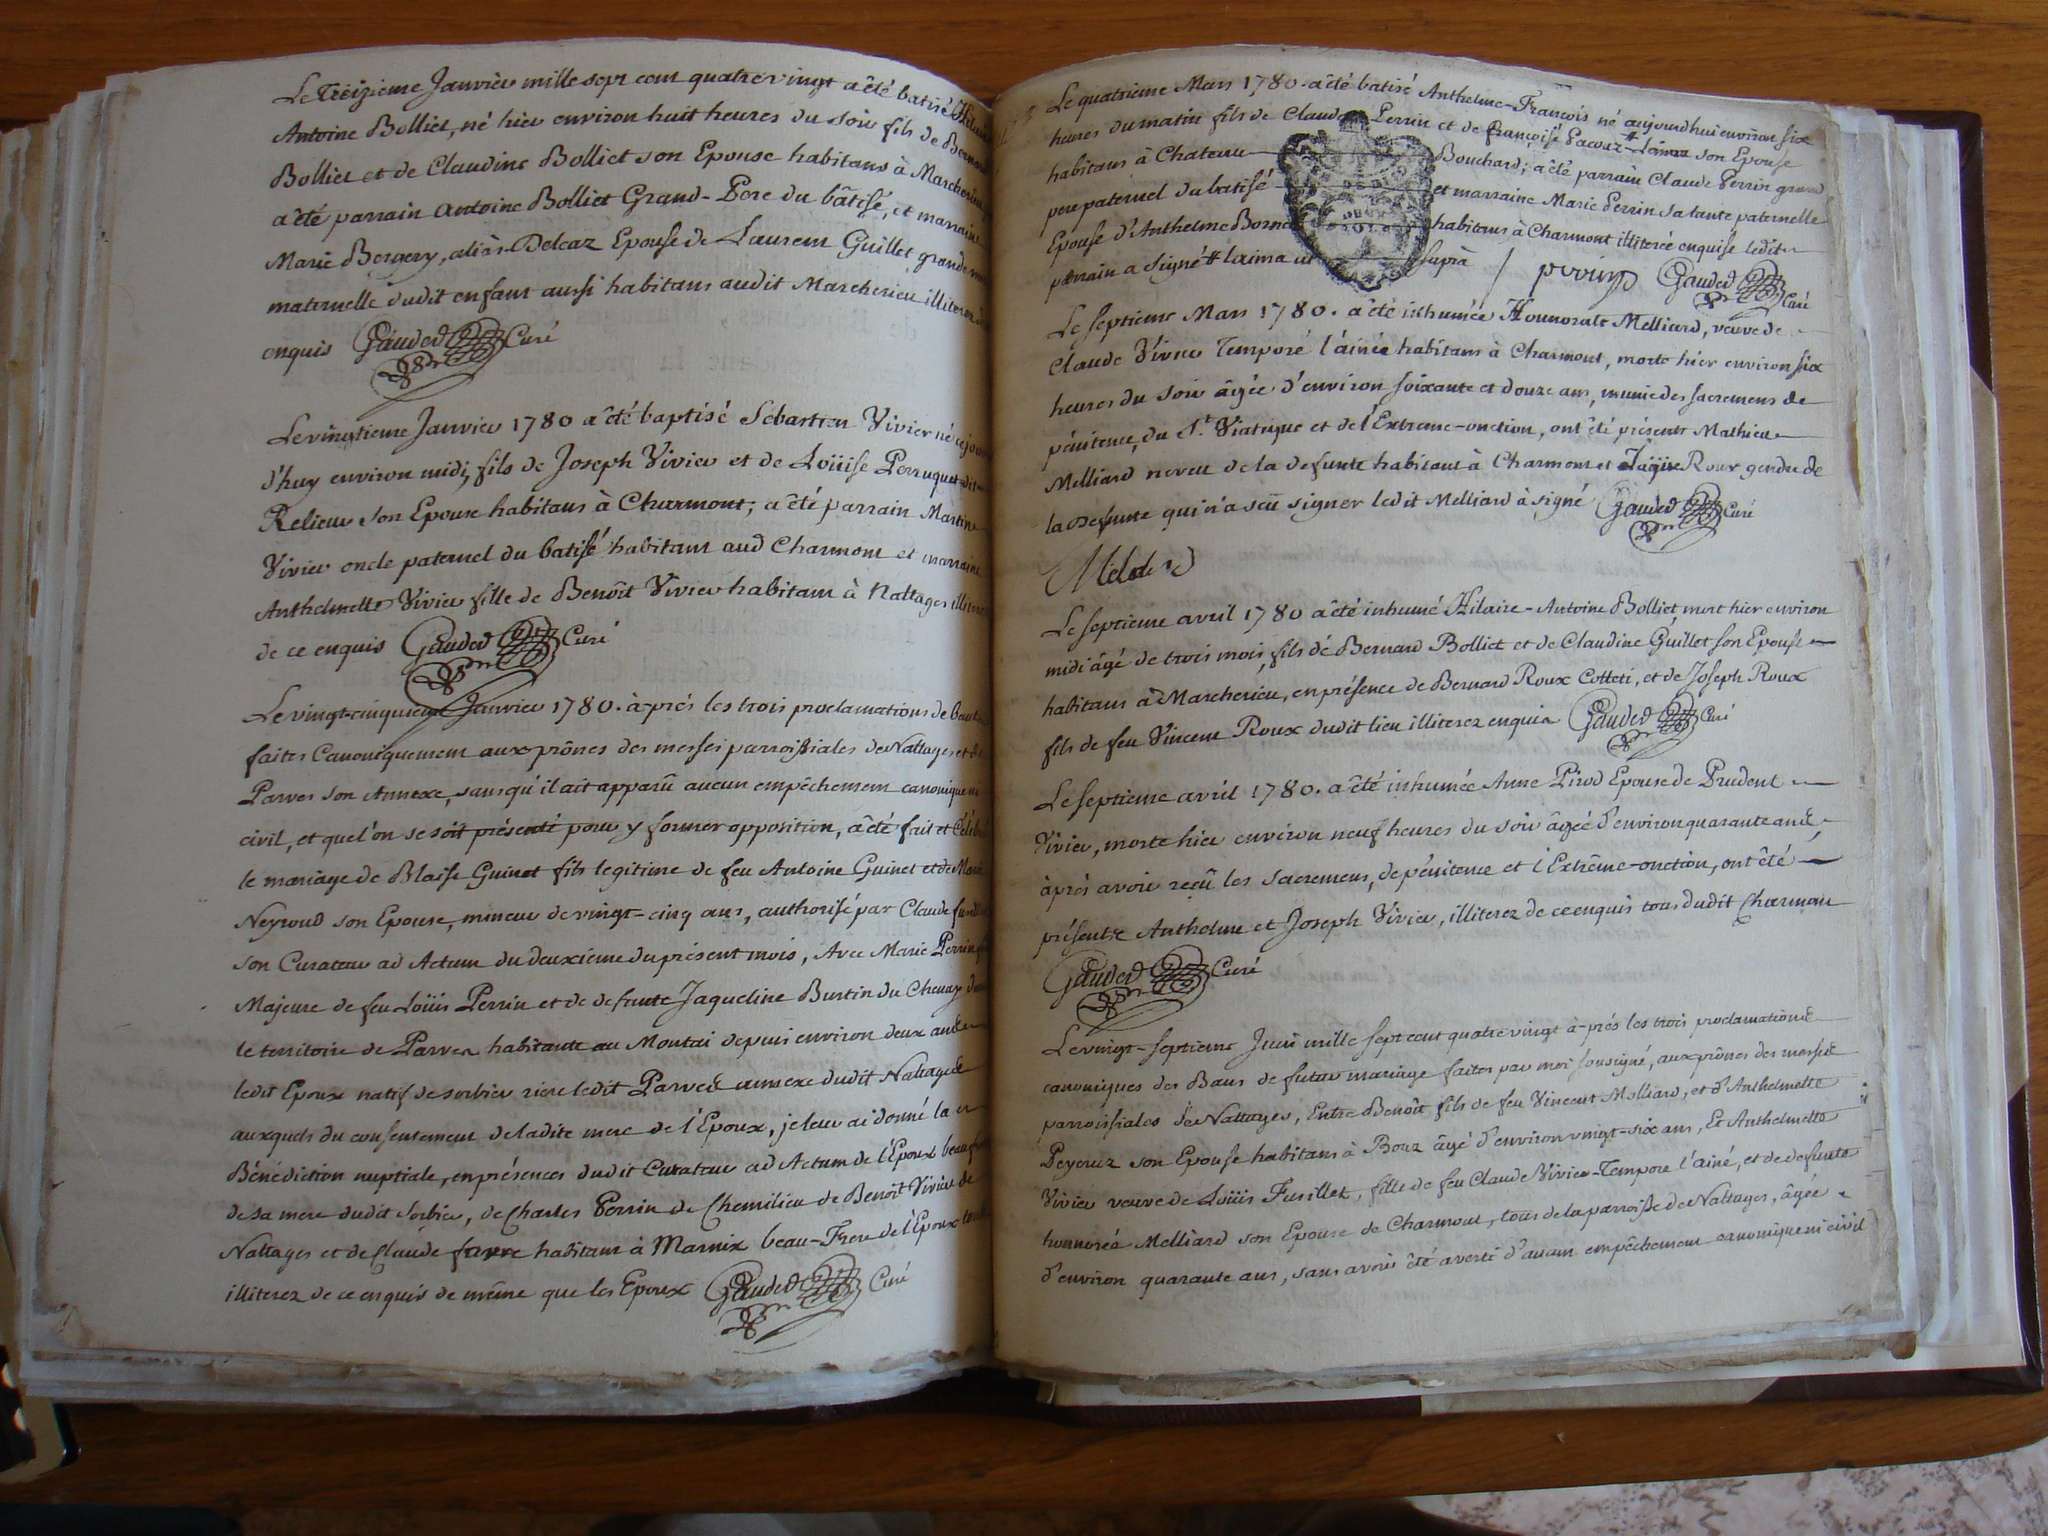 Le Treizieme Janvier mille sept cent quatre vingt a êté batisé Hilaire
Antoine Bolliet, né hier environ huit heures du soir fils de Bernard
Bolliet et de Claudine Bolliet son Epouse habitans à Marcherieu
a êté parrain Antoine Bolliet Grand-Pere du bâtisé, et marraine
Marie Bergery, alias Delcaz Epouse de Laurent Guillet grande mere
maternelle dudit enfant aussi habitans audit Marcherieu illiterez
enquis Gauded Curé
Le vingtieme Janvier 1780 a êté baptisé Sebastien Vivier né ce jour
d'huy environ midi, fils de Joseph Vivier et de Loüise Perruquet dit
Relieur son Epouse habitans à Charmont; a êté parrain Martin
Vivier oncle paternel du batisé habitant aud Charmont et marraine
Anthelmette Vivier fille de Benôit Vivier habitant à Nattages illiterez
de ce enquis Gauded Curé
Le vingt-cinquieme Janvier 1780. à prés les trois proclamations de bans
faites Canoniquement aux prônes des messes parroissiales de Nattages et de
Parves son Annexe, sans qu'il ait apparû aucun empêchement canonique ni
civil, et que l'on se soit présenté pour y former opposition, a êté fait et Célébré
le mariage de Blaise Guinet fils legitime de feu Antoine Guinet et de Marie
Neyroud son Epouse, mineur de vingt-cinq ans, authorisé par Claude
son Curateur ad Actum du deuxieme du présent mois, Avec Marie Perrin fille
Majeure de feu Loüis Perrin et de defunte Jaqueline Burtin du Chenaz
le territoire de Parves habitante au Montai depuis environ deux ans
ledit Epoux natif de sorbier riere ledit Parves annexe dudit Nattages
auxquels du consentement de ladite mere de l'Epoux, je leur ai donné la
Bénédiction nuptiale, en présences dudit Curateur ad Actum de l'Epoux beau frere
de sa mere dudit sorbier, de Charles Perrin de Chemilieu de Benoît Vivier de
Nattages et de Claude favre habitant à Marnix beau-Frere de l'Epoux tous
illiterez de ce enquis de même que les Epoux Gauded Curé
Le quatrieme Mars 1780. a êté batisé Anthelme-François né aujourdhui environ six
heures du matin fils de Claude Perrin et de françoise Lacouz # son Epouse
habitans à Chateau Bouchard; a êté parrain Claude Perrin grand
pere paternel du batisé et marraine Marie Perrin sa tante paternelle
Epouse d'Anthelme Borne habitans à Charmont illiterée enquise ledit
parrain a signé # laima ut suprà / perrin Gauded Curé
Le septieme Mars 1780. a êté inhumée Honnorate Melliard, veuve de
Claude Vivier Temporé l'ainée habitans à Charmont, morte hier environ six
heures du soir âgée d'environ soixante et douze ans, munie des sacremens de
pénitence, du St. Viatique et de l'Extreme-onction, ont êté présents Mathieu
Melliard neveu de la defunte habitant à Charmont et Roux gendre de
la defunte qui n'a seû signer ledit Melliard à signé Gauded Curé
Le septieme avril 1780 a êté inhumé Hilaire-Antoine Bolliet mort hier environ
midi âgé de trois mois, fils de Bernard Bolliet et de Claudine Guillet son Epouse
habitans à Marcherieu, en présence de Bernard Roux Cotteti, et de Joseph Roux
fils de feu Vincent Roux dudit lieu illiterez enquis Gauded Curé
Le septieme avril 1780. a êté inhumée Anne Pirod Epouse de Prudent
Vivier, morte hier environ neuf heures du soir âgée d'environ quarante ans,
àprés avoir reçû les sacremens, de pénitence et l'Extrême-onction, ont êté
présents Anthelme et Joseph Vivier, illiterez de ce enquis tous dudit Charmont
Gauded Curé
Le vingt-septieme Juin mille sept cent quatre vingt à-prés les trois proclamations
canoniques des Bans de futur mariage faites par moi soussigné, aux prônes des messes
parroissiales de Nattages, Entre Benoît fils de feu Vincent Melliard, et d'Anthelmette
Peycruz son Epouse habitans à Bouz âgé d'environ vingt-six ans, Et Anthelmette
Vivier veuve de Loüis Fusillet, fille de feu Claude Vivier-Tempore l'ainé, et de defunte
honnoréa Melliard son Epouse de Charmont, tous de la parroisse de Nattages, âgée
d'environ quarante ans, sans avoir êté averti d'aucun empêchement canonique ni civil